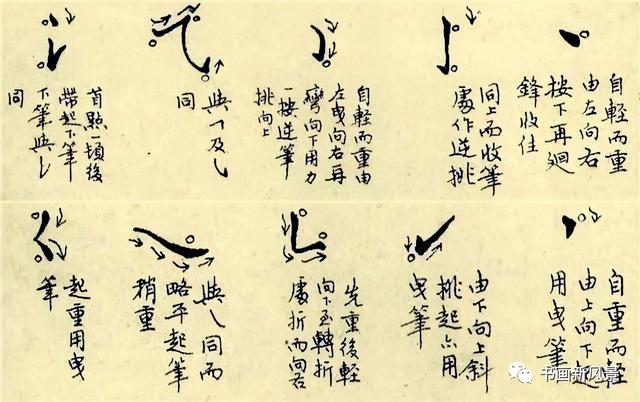 自輕而重
由左向右
按下再廻
鋒收住
同上而收筆
處作逆挑
自輕而重由
左曳向右再
彎向下用力
一按逆筆
挑向上
與乛及乚
同
首點一頓後
帶起下筆
下筆與乚
同
自重而輕
由上向下起
用曳筆
由下向上斜
挑起亦用
曳筆
先重後輕
向下至轉折
處折而向右
與乀同而
略平起筆
稍重
起重用曳
筆
书画新风景